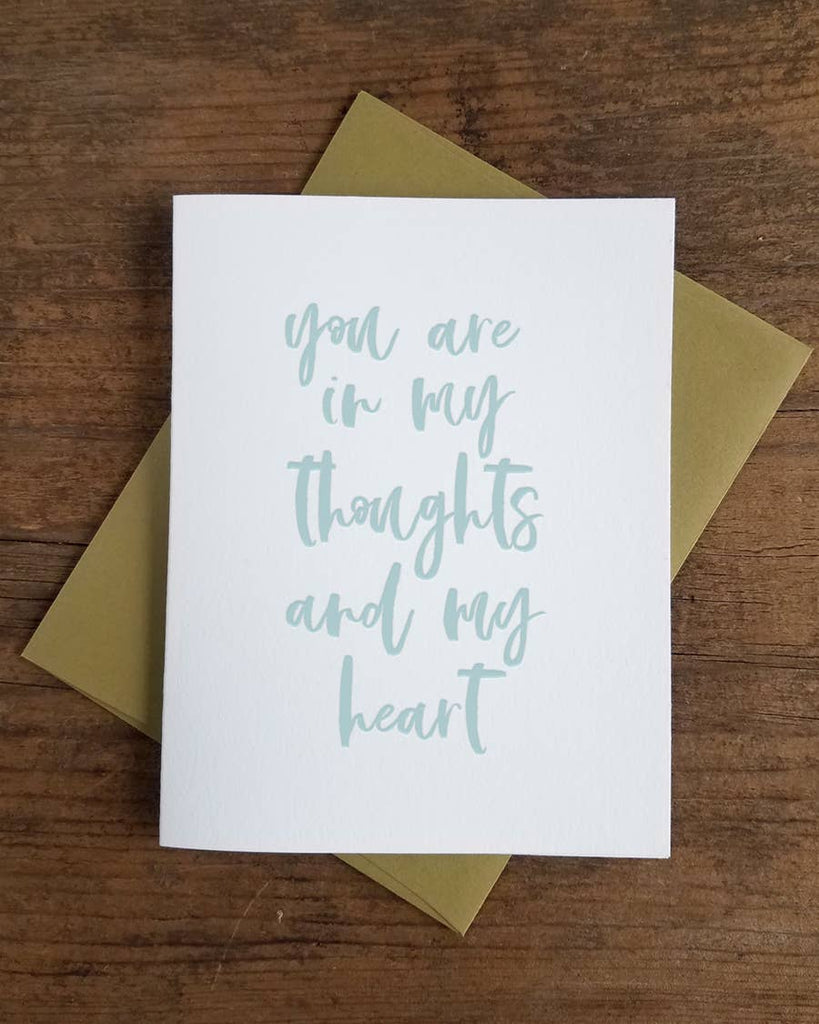 you are
in my
thoughts
and my
heart